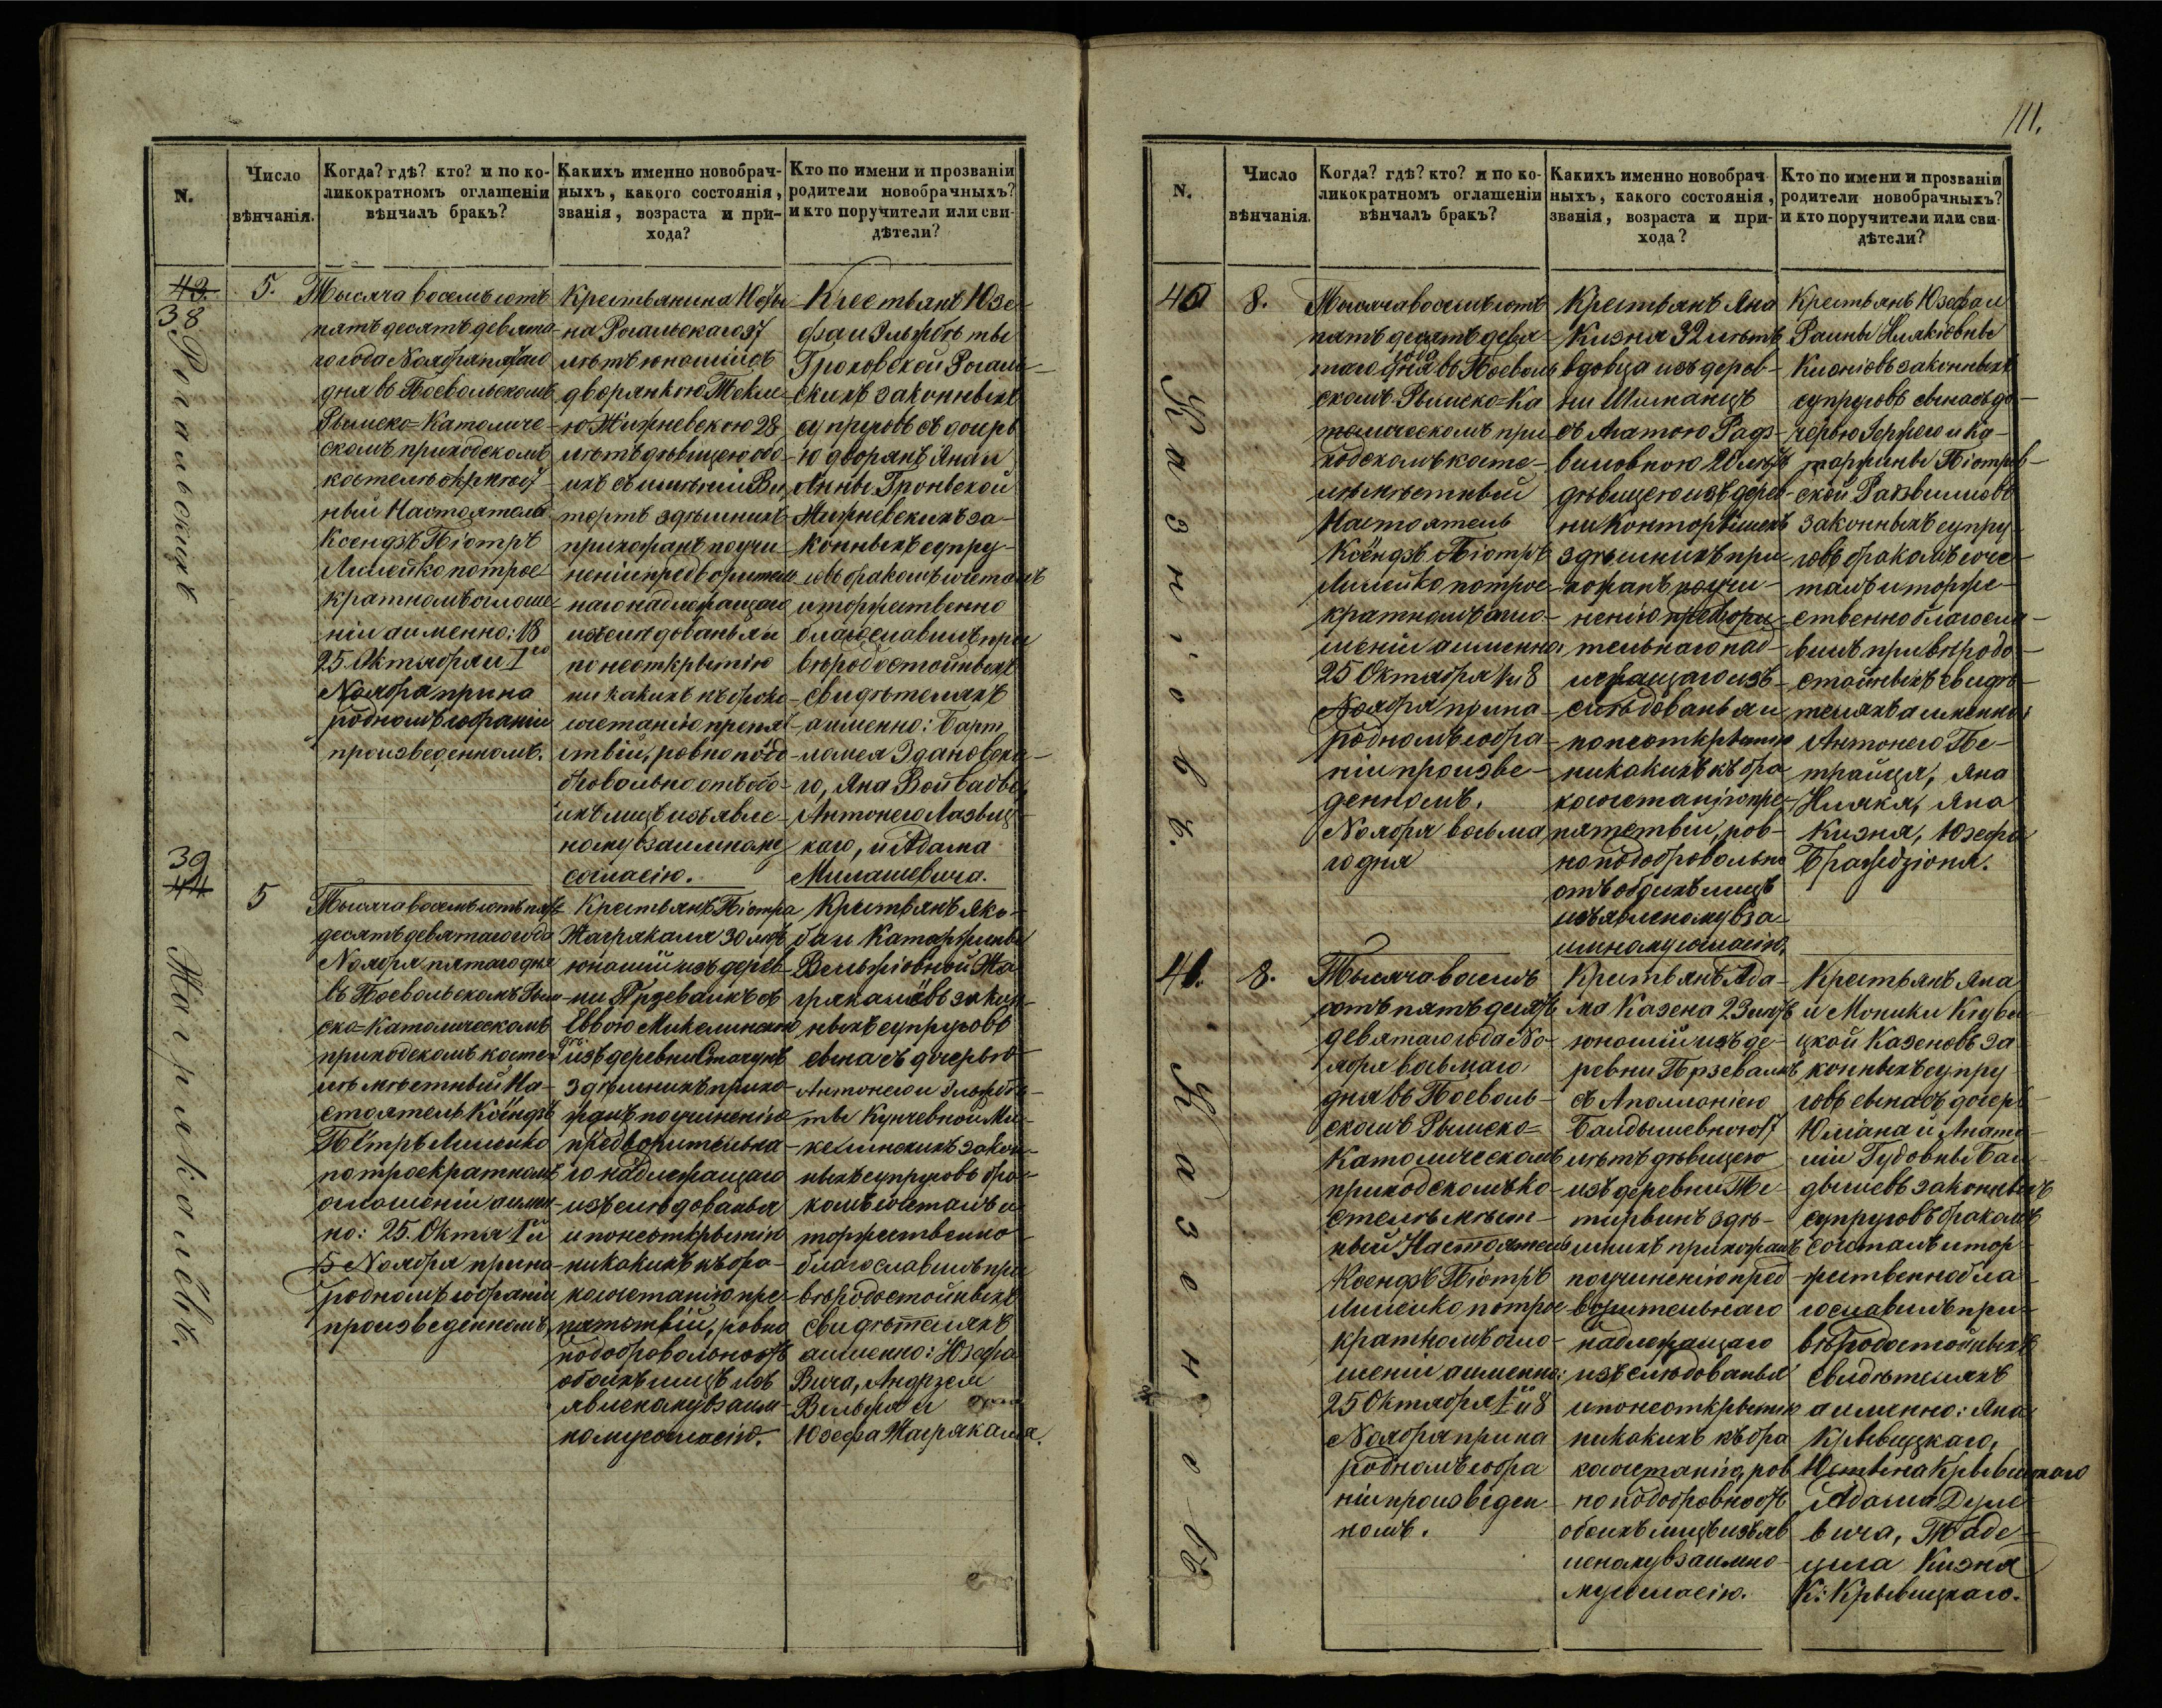 111.
N.
Число
вѣнчанія.
Когда? гдѣ? кто? и по ко-
ликократномъ оглашеніи
вѣнчалъ бракъ?
Какихъ именно новобрач-
ныхъ, какого состоянія,
званія, возраста и при-
хода?
Кто по имени и прозваніи
родители новобрачныхъ?
и кто поручители или сви-
дѣтели?
43.
38
Рогальскихъ
5.
Тысяча восемьсотъ
пятьдесятъ девята-
го года Ноября пятаго
дня въ Поевольскомъ
Рымско-Католиче-
скомъ приходскомъ
костелѣ
ный Настоятель
Ксендзъ Піотръ
Лилейко потрое
кратномъ оглаше-
ніи аименно: 18
25 Октября и 1го
Ноября прина
родномъ собраніи
произведенномъ.
Крестьянина Юсты
на Рогальскаго 37
лѣтъ юношій съ
дворянкою Текле-
ю Жижневскою 28
лѣтъ дѣвицею обо-
ихъ съ имѣнія Ви
тортъ здѣшнихъ
прихожанъ по учи-
неніи предворитель
наго надлежащаго
изслѣдованья и
по неоткрытію
никакихъ къ брако
сочетанію препят
ствій, ровно по до
бровольно отъ обо-
ихъ лицъ изъявле-
ному взаимному
согласію.
Крестьянъ Юзе
фа и Эльжбѣты
Гроховской Рогаль-
скихъ законныхъ
супруговъ съ дочерь
ю дворянъ Яна и
Анны Гроневской
Мижневскихъ за-
конныхъ супру-
говъ бракомъ сочеталъ
и торжественно
благославилъ при
вѣродостойныхъ
свидѣтеляхъ
аименно: Барт
ломея Здановска-
го, Яна Войвады,
Антонего Лазвиц-
каго, и Адама
Милашевича.
39
44
Жагрякалёвъ.
5
Тысяча восемьсотъ пять
десятъ девятаго года
Ноября пятаго дня
въ Поевольскомъ Рым
ско-Католическомъ
приходскомъ косте
лѣ мѣстный На-
стоятель Ксёндзъ
Пётръ Лилейко
по троекратномъ
оглашеніи аимен-
но: 25. Октя 1 и
5 Ноября прина-
родномъ собраніи
произведенномъ,
Крестьянъ Піотра
Жагрякаля 30 лѣтъ
юношій изъ дерев-
ни Прзевалкъ съ
Еввою Микелинскою
дѣ. изъ деревни Стагунъ
здѣшнихъ прихо-
жанъ по учиненію
предворительна-
го надлежащаго
изъслѣдованья
и понеоткрытію
никакихъ къ бра-
косочетанію пре-
пятствій, ровно
подобровольно отъ
обоихъ лицъ изъ
явленому взаим-
ному согласію.
Крестьянъ Яко-
ба и Катаржины
Вельжіовной Жа-
грякалёвъ закон-
ныхъ супруговъ
сына съ дочерью
Антонего и Эльжбѣ-
ты Кунчевной Ми-
келинскихъ закон-
ныхъ супруговъ бра-
комъ сочеталъ и
торжественно
благославилъ при
вѣродостойныхъ
свидѣтеляхъ
аименно: Юзефа
Вича, Андрзея
Вельжа и
Юзефа Жагрякаля.
N.
Число
вѣнчанія.
Когда? гдѣ? кто? и по ко-
ликократномъ оглашеніи
вѣнчалъ бракъ?
Какихъ именно новобрач-
ныхъ, какого состоянія,
званія, возраста и при-
хода?
Кто по имени и прозваніи
родители новобрачныхъ?
и кто поручители или сви-
дѣтели?
40
Казніовъ.
8.
Тысяча восемьсотъ
пятьдесятъ девя-
таго года дня въ Поеволь
скомъ Рымско-Ка
толическомъ при
ходскомъ косте-
лѣ мѣстный
Настоятель
Ксёндзъ Піотръ
Лилейко потрое-
кратномъ огло-
шеніи аименно,
25 Октября 1 и 8
Ноября прина-
родномъ собра-
ніи произве-
денномъ.
Ноября восьма
го дня
Крестьянъ Яна
Кизня 32 лѣтъ
вдовца изъ дерев-
ни Шиманцъ
съ Агатою Радз-
виловною 20 лѣтъ
дѣвицею изъ дерев-
ни Конторвишекъ
здѣшнихъ при
хожанъ по учи-
ненію предвори-
тельнаго над-
лежащаго изъ-
слѣдованья и
по неоткрытію
никакихъ къ бра
косочетанію пре-
пятствій, ров-
но подобровольно
отъ обоихъ лицъ
изъявленому вза-
имному согласію.
Крестьянъ Юзефа и
Раины Илякіовны
Кизніовъ законныхъ
супруговъ сына съ до-
черью Іержего и Ка-
таржины Піотров-
ской Радзвилловъ
законныхъ супру-
говъ бракомъ соче-
талъ и торже-
ственно благосла-
вилъ при вѣродо-
стойныхъ свидѣ-
теляхъ аименно:
Антонего Пе-
трайця, Яна
Иляка, Яна
Кизня, Юзефа
Бражедзіоня.
41.
Казеновъ
8.
Тысяча восемь
сотъ пятьдесятъ
девятаго года Но-
ября восьмаго
дня въ Поеволь-
скомъ Рымско-
Католическомъ
приходскомъ ко-
стелѣ мѣст-
ный Настоятель
Ксендзъ Піотръ
Лилейко потрое
кратномъ огло-
шеніи аименно:
25 Октября 1 и 8
Ноября прина
родномъ собра
ніи произведен-
номъ.
Крестьянъ Ада-
ма Казена 23 лѣтъ
юношій изъ де-
ревни Прзевалкъ
съ Аполлоніею
Балдышевною 17
лѣтъ дѣвицею
изъ деревни Те
тирвинъ здѣ-
шнихъ прихожанъ
по учиненію пред
ворительнаго
надлежащаго
изъслѣдованья
и понеоткрытію
никакихъ къ бра
косочетанію, ров
но подобровно отъ
обоихъ лицъ изъяв
леному взаимно-
му согласію.
Крестьянъ Яна
и Моники Крыви
цкой Казеновъ за
конныхъ супру
говъ сына съ дочерью
Юліана и Анато-
ліи Гудовны Бал
дышевъ законныхъ
супруговъ бракомъ
сочеталъ и тор-
жественно бла
гославилъ при-
вѣродостойныхъ
свидѣтеляхъ
аименно: Яна
Крывицкаго,
Юстына Крывицкаго
Адама Дуле-
вича, Таде-
уша Кизня
К: Крывицкаго.